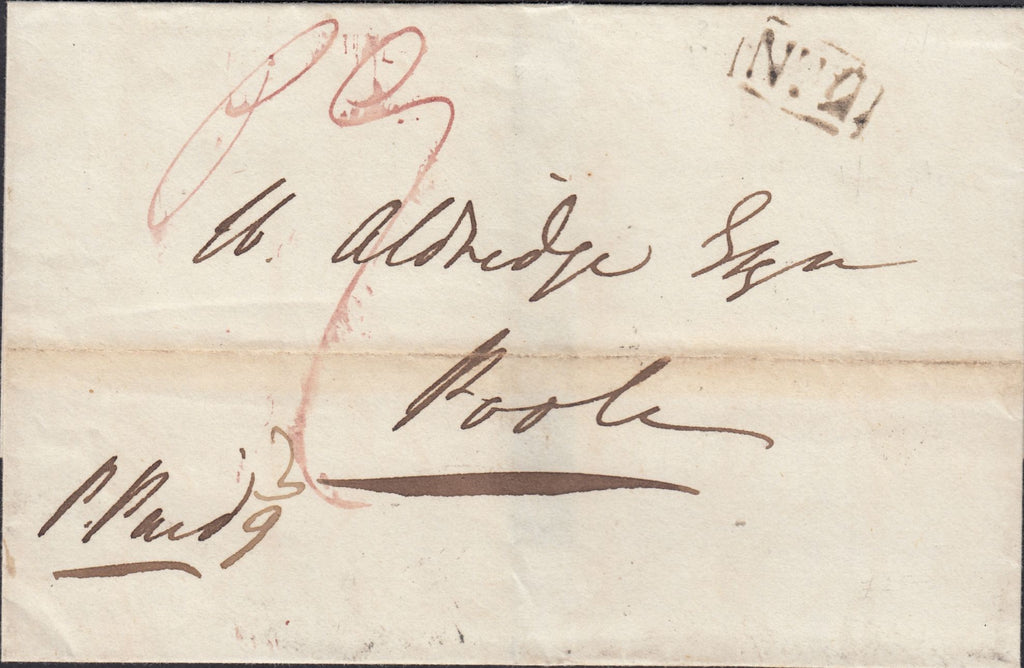 No. 2
W. Aldridge Esqr
Poole
P. Paid
3
9